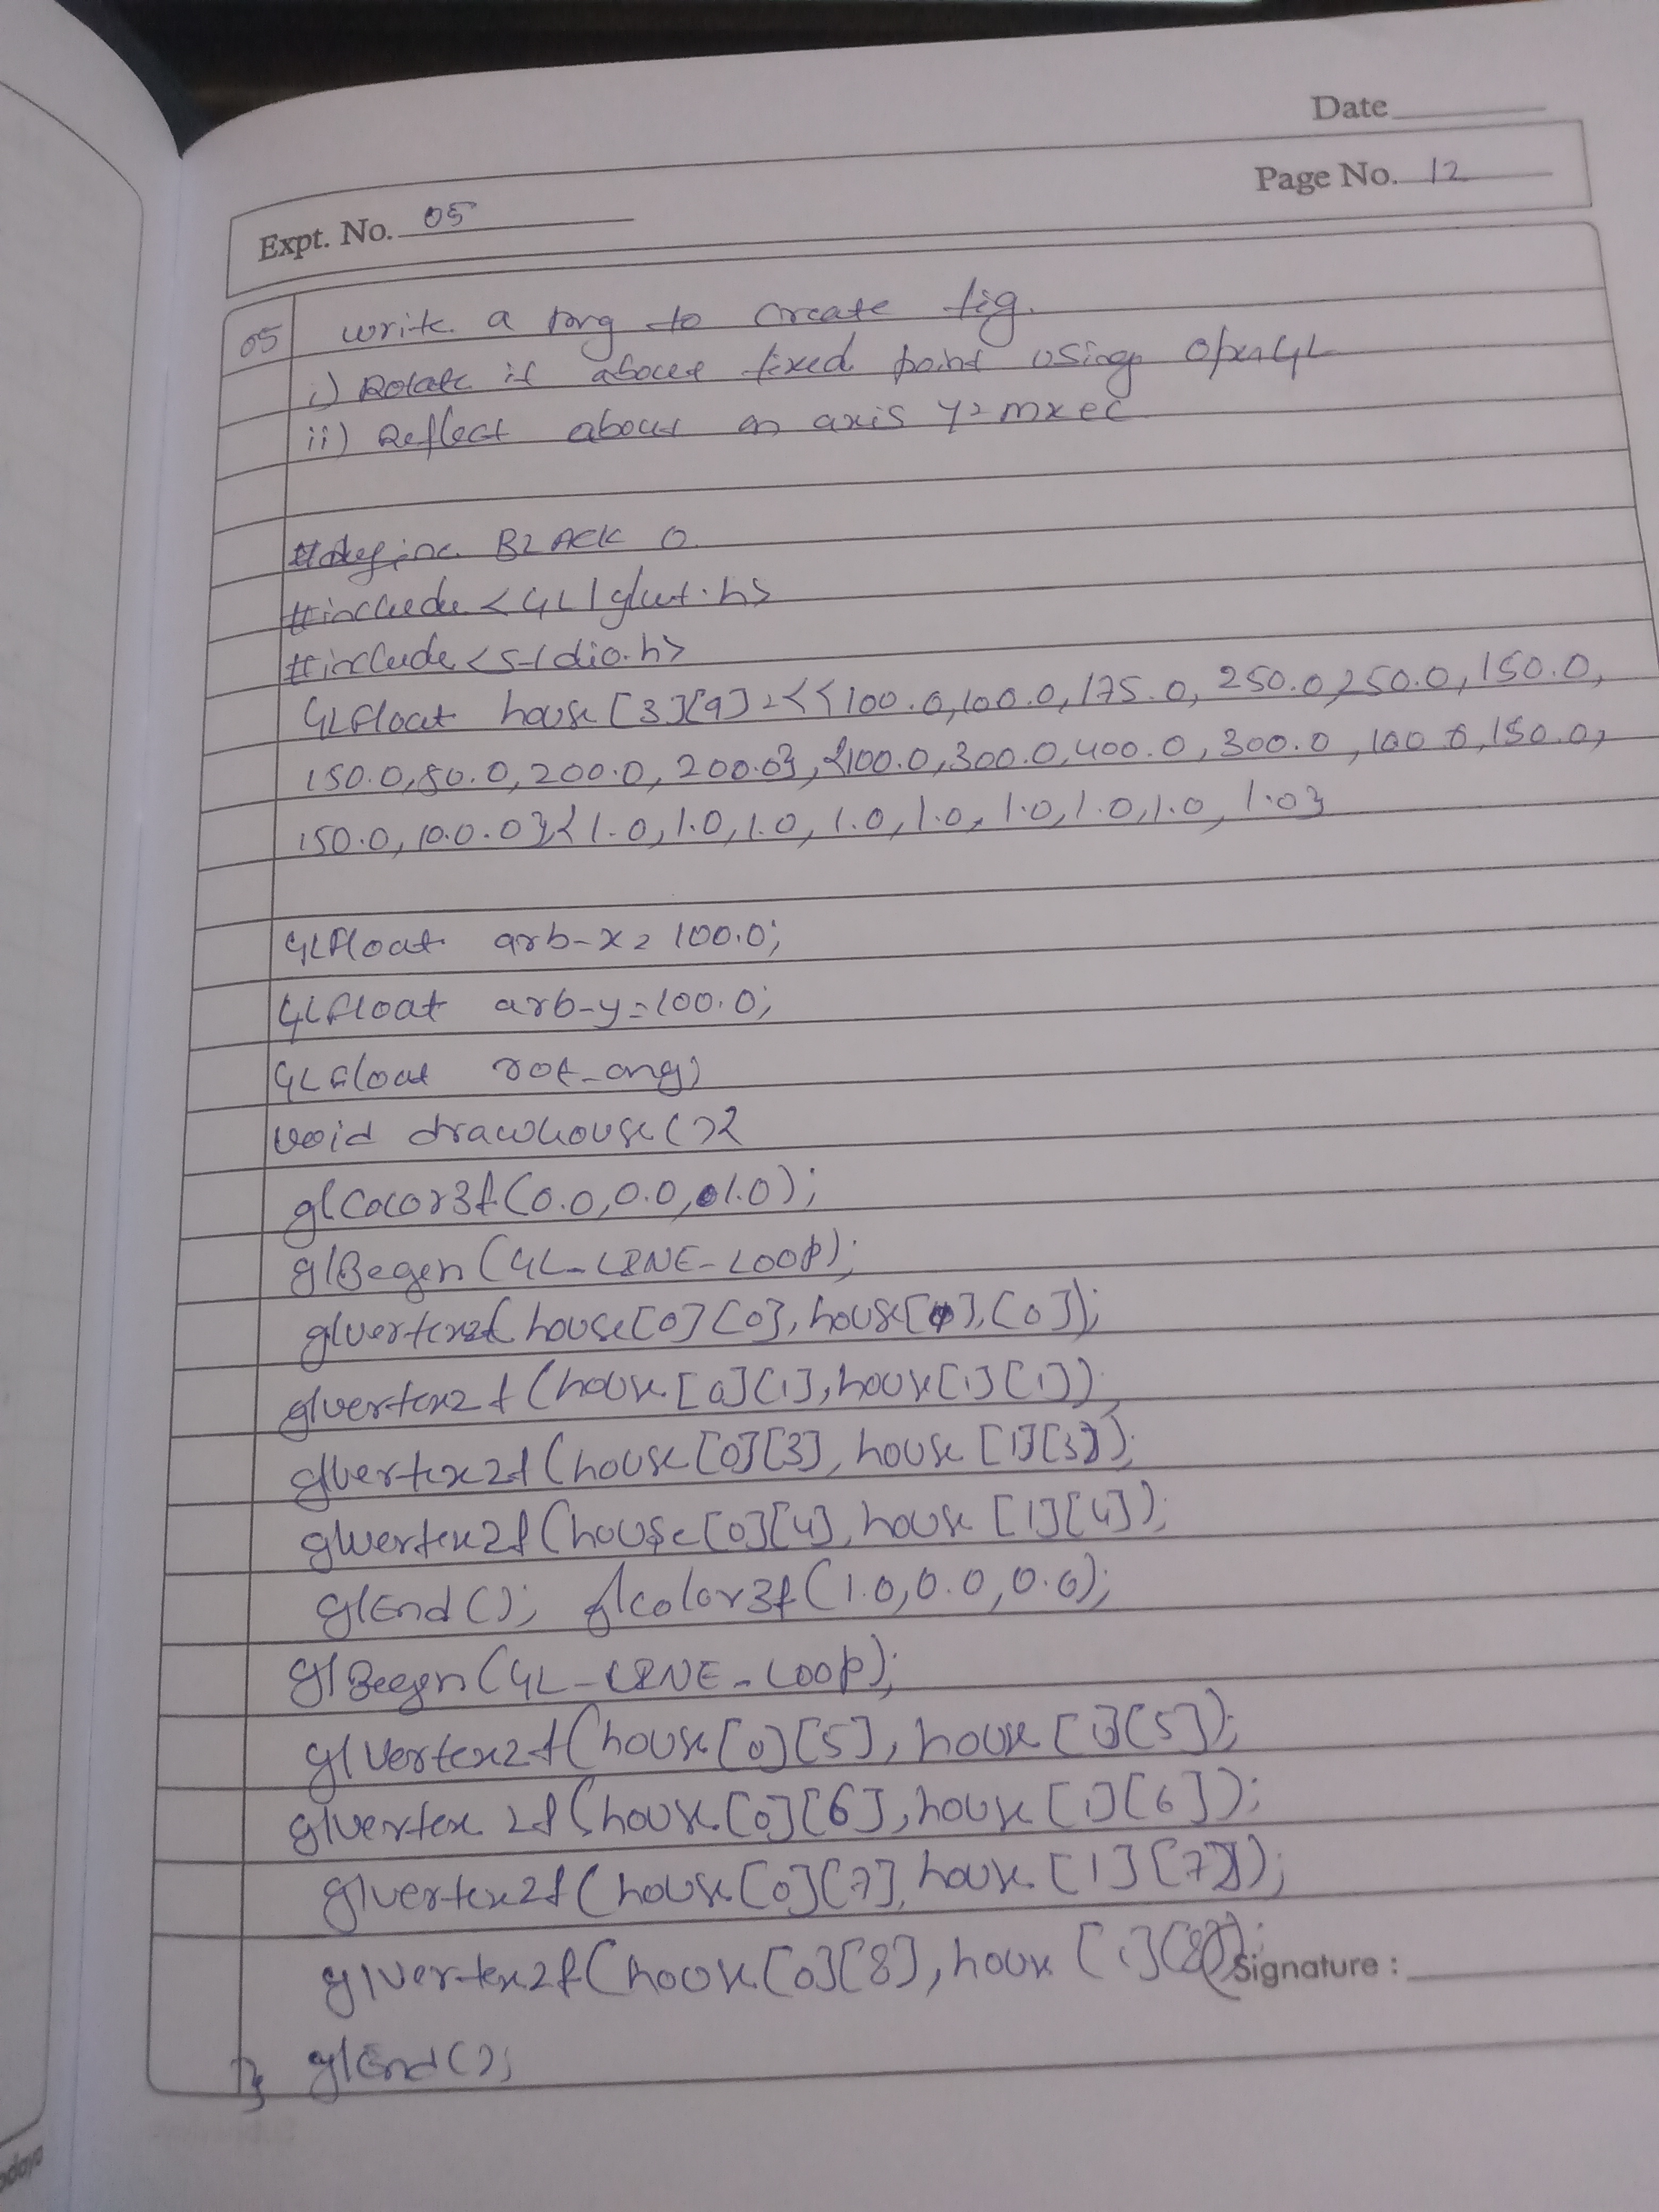 Date
Page No. 12
Expt. No. 05
05 write a prog to create fig.
i) Rotate it about fixed point using OpenGL
ii) Reflect about an axis y=mx+c
#define BLACK 0
#include <GL/glut.h>
#include <stdio.h>
GLfloat house [3][9]={{100.0,100.0,175.0, 250.0,250.0,150.0,
150.0,80.0,200.0, 200.0},{100.0,300.0,400.0,300.0,100.0,150.0,
150.0,100.0},{1.0,1.0,1.0,1.0,1.0,1.0,1.0,1.0,1.0}
GLfloat arb-x= 100.0;
GLfloat arb-y=100.0;
GLfloat rot_ang;
void drawhouse(){
glColor3f(0.0,0.0,1.0);
glBegin(GL_LINE_LOOP);
glvertex2f(house[0][0],house[1],[0]);
glvertex2f(house[0][1],house[1][1]);
glvertex2f(house[0][3],house[1][3]);
glvertex2f(house[0][4],house[1][4]);
glEnd(); glcolor3f(1.0,0.0,0.0);
glBegin(GL_LINE_LOOP);
glVertex2f(house[0][5],house[1][5]);
glvertex2f(house[0][6],house[1][6]);
glvertex2f(house[0][7],house[1][7]);
glVertex2f(house[0][8],house[1][8]);
Signature :
} glEnd();